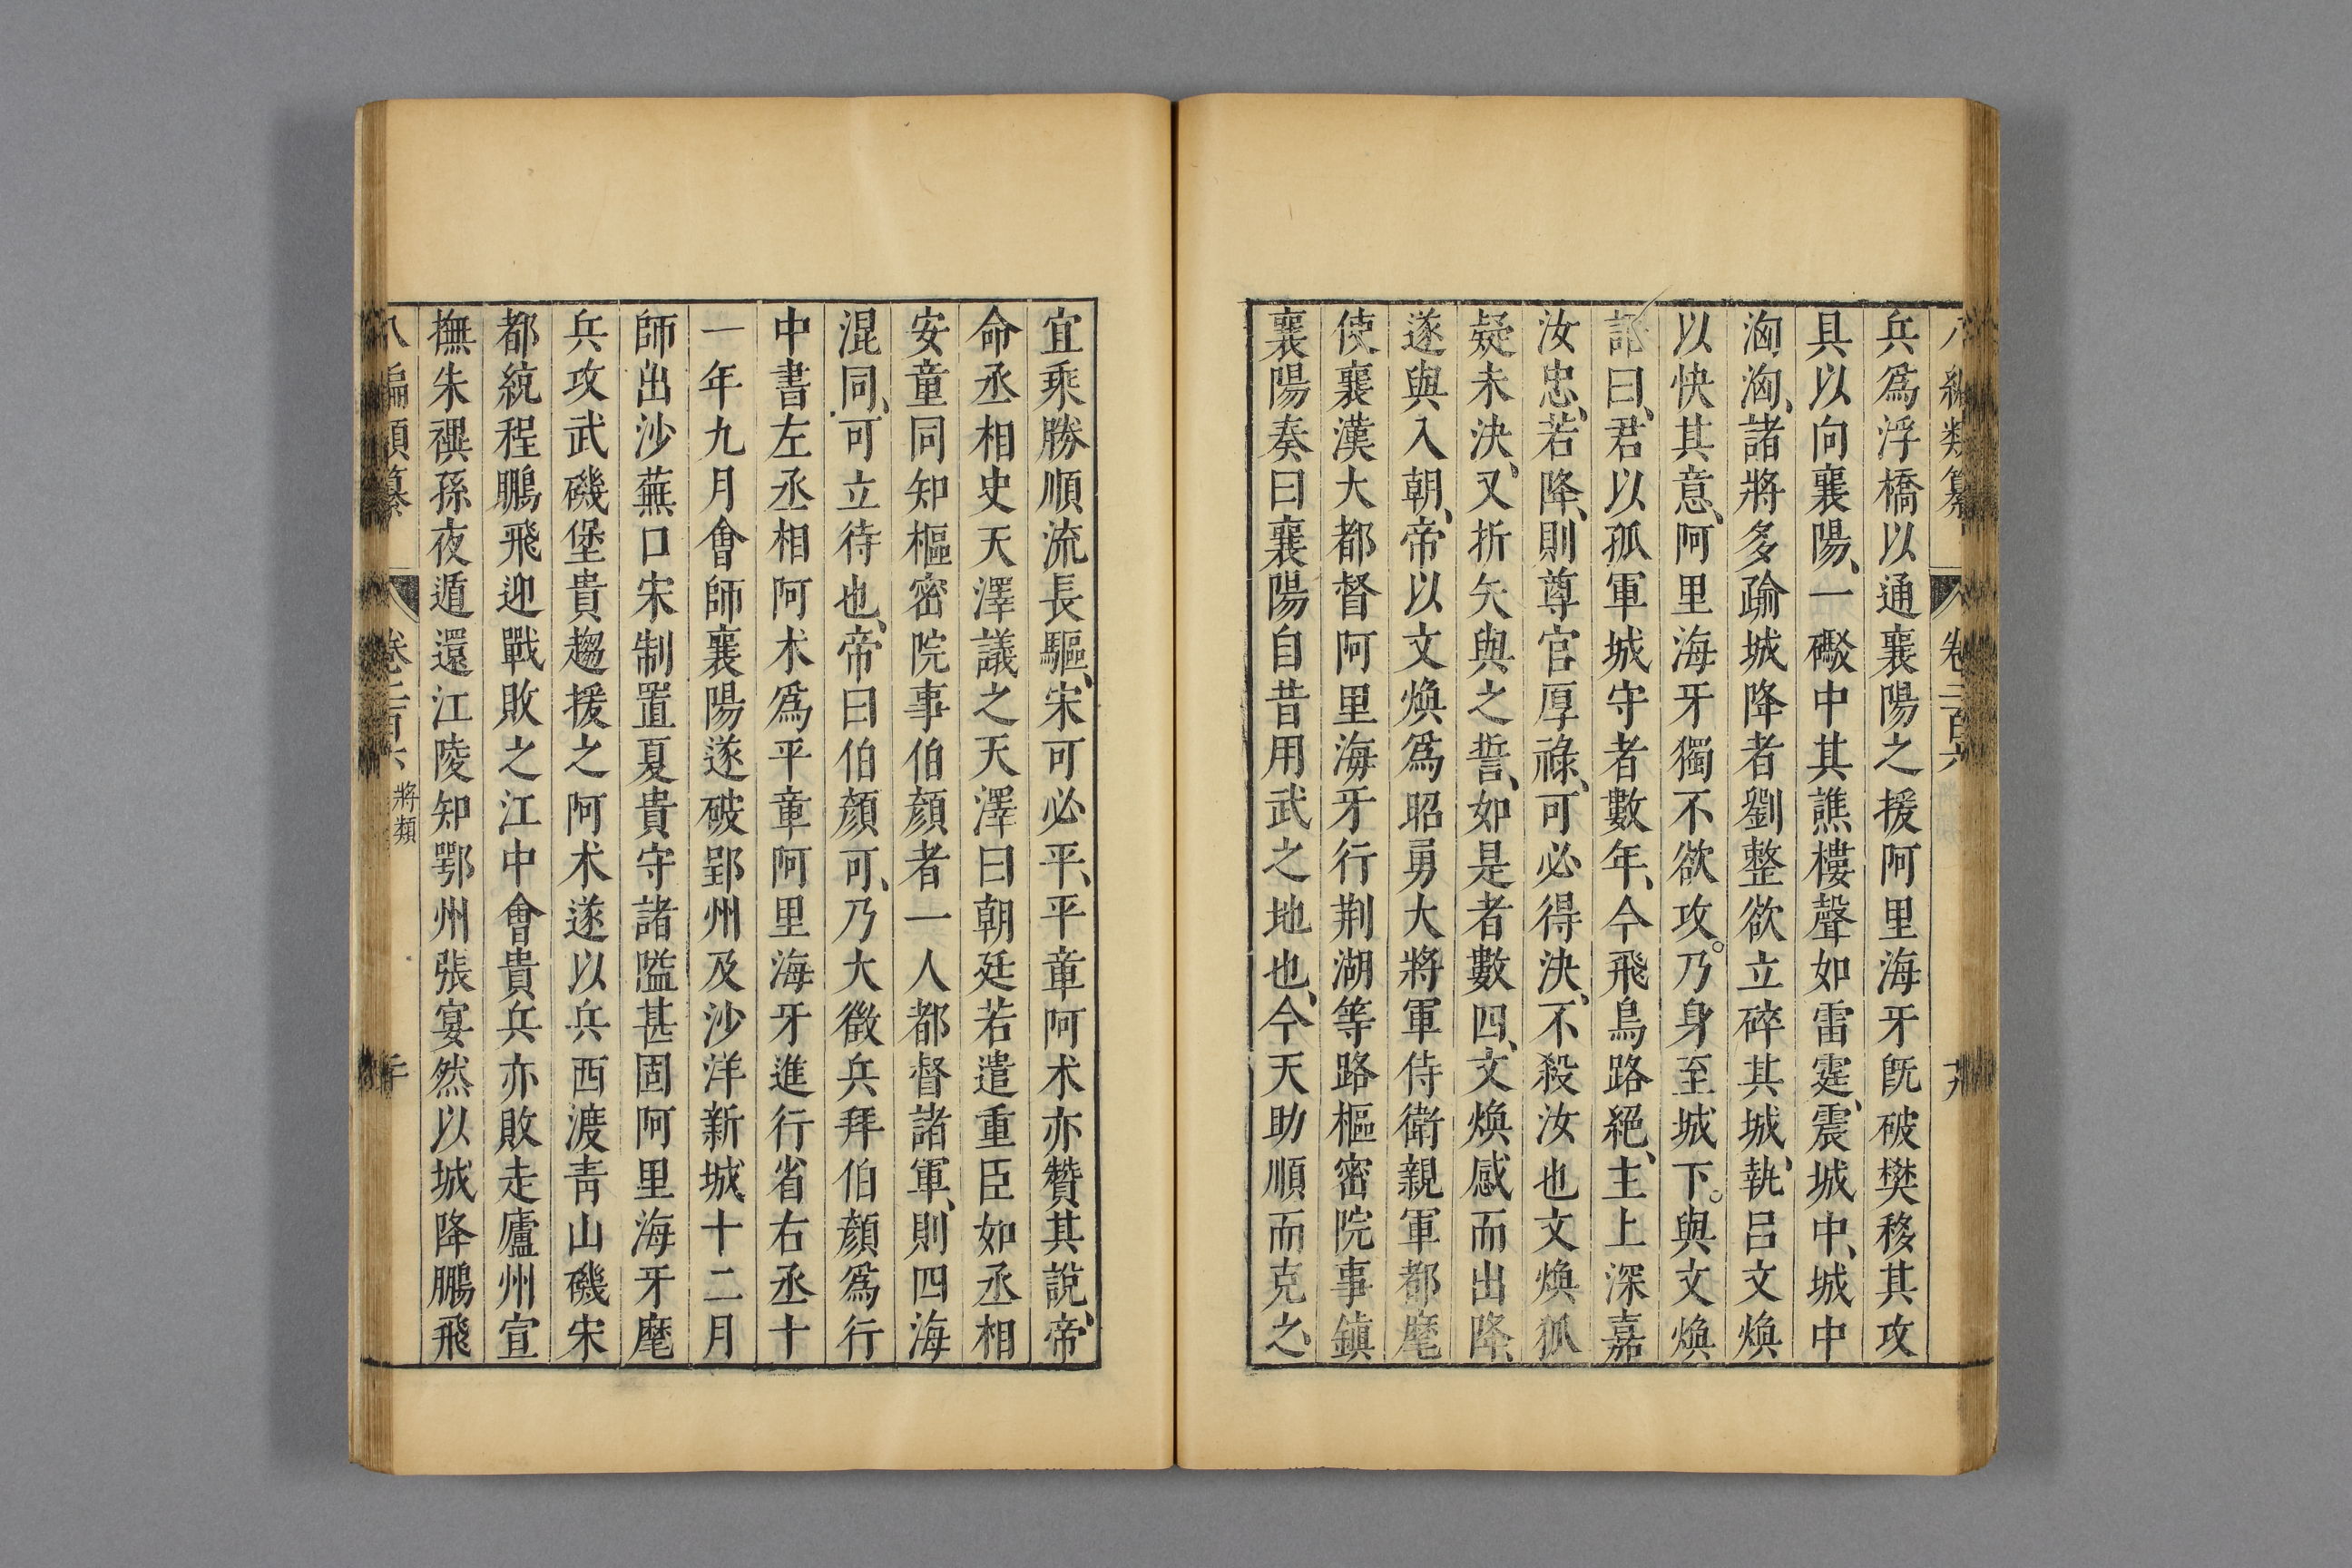 八編類纂 卷二百六 十九
兵爲浮橋以通襄陽之援阿里海牙旣破樊移其攻
具以向襄陽、一礮中其譙樓聲如雷霆、震城中、城中
洶洶、諸將多踰城降者劉整欲立碎其城、執呂文煥
以快其意、阿里海牙獨不欲攻。乃身至城下。與文煥
語曰、君以孤軍城守者數年、今飛鳥路絕、主上深嘉
汝忠、若降、則尊官厚祿、可必得決、不殺汝也文煥狐
疑未決、又折矢與之誓、如是者數四、文煥感而出降、
遂與入朝、帝以文煥爲昭勇大將軍侍衛親軍都麾
使襄漢大都督阿里海牙行荆湖等路樞密院事鎮
襄陽奏曰襄陽自昔用武之地也、今天助順而克之、
宜乘勝順流長驅、宋可必平、平章阿术亦贊其說、帝
命丞相史天澤議之天澤曰朝廷若遣重臣如丞相
安童同知樞密院事伯顏者一人都督諸軍、則四海
混同、可立待也、帝曰伯顏可、乃大徵兵拜伯顏爲行
中書左丞相阿术爲平章阿里海牙進行省右丞十
一年九月會師襄陽遂破郢州及沙洋新城十二月
師出沙蕪口宋制置夏貴守諸隘甚固阿里海牙麾
兵攻武磯堡貴趨援之阿术遂以兵西渡靑山磯宋
都統程鵬飛迎戰敗之江中會貴兵亦敗走廬州宣
撫朱禩孫夜遁還江陵知鄂州張宴然以城降鵬飛
八編類纂 卷二百六 將類